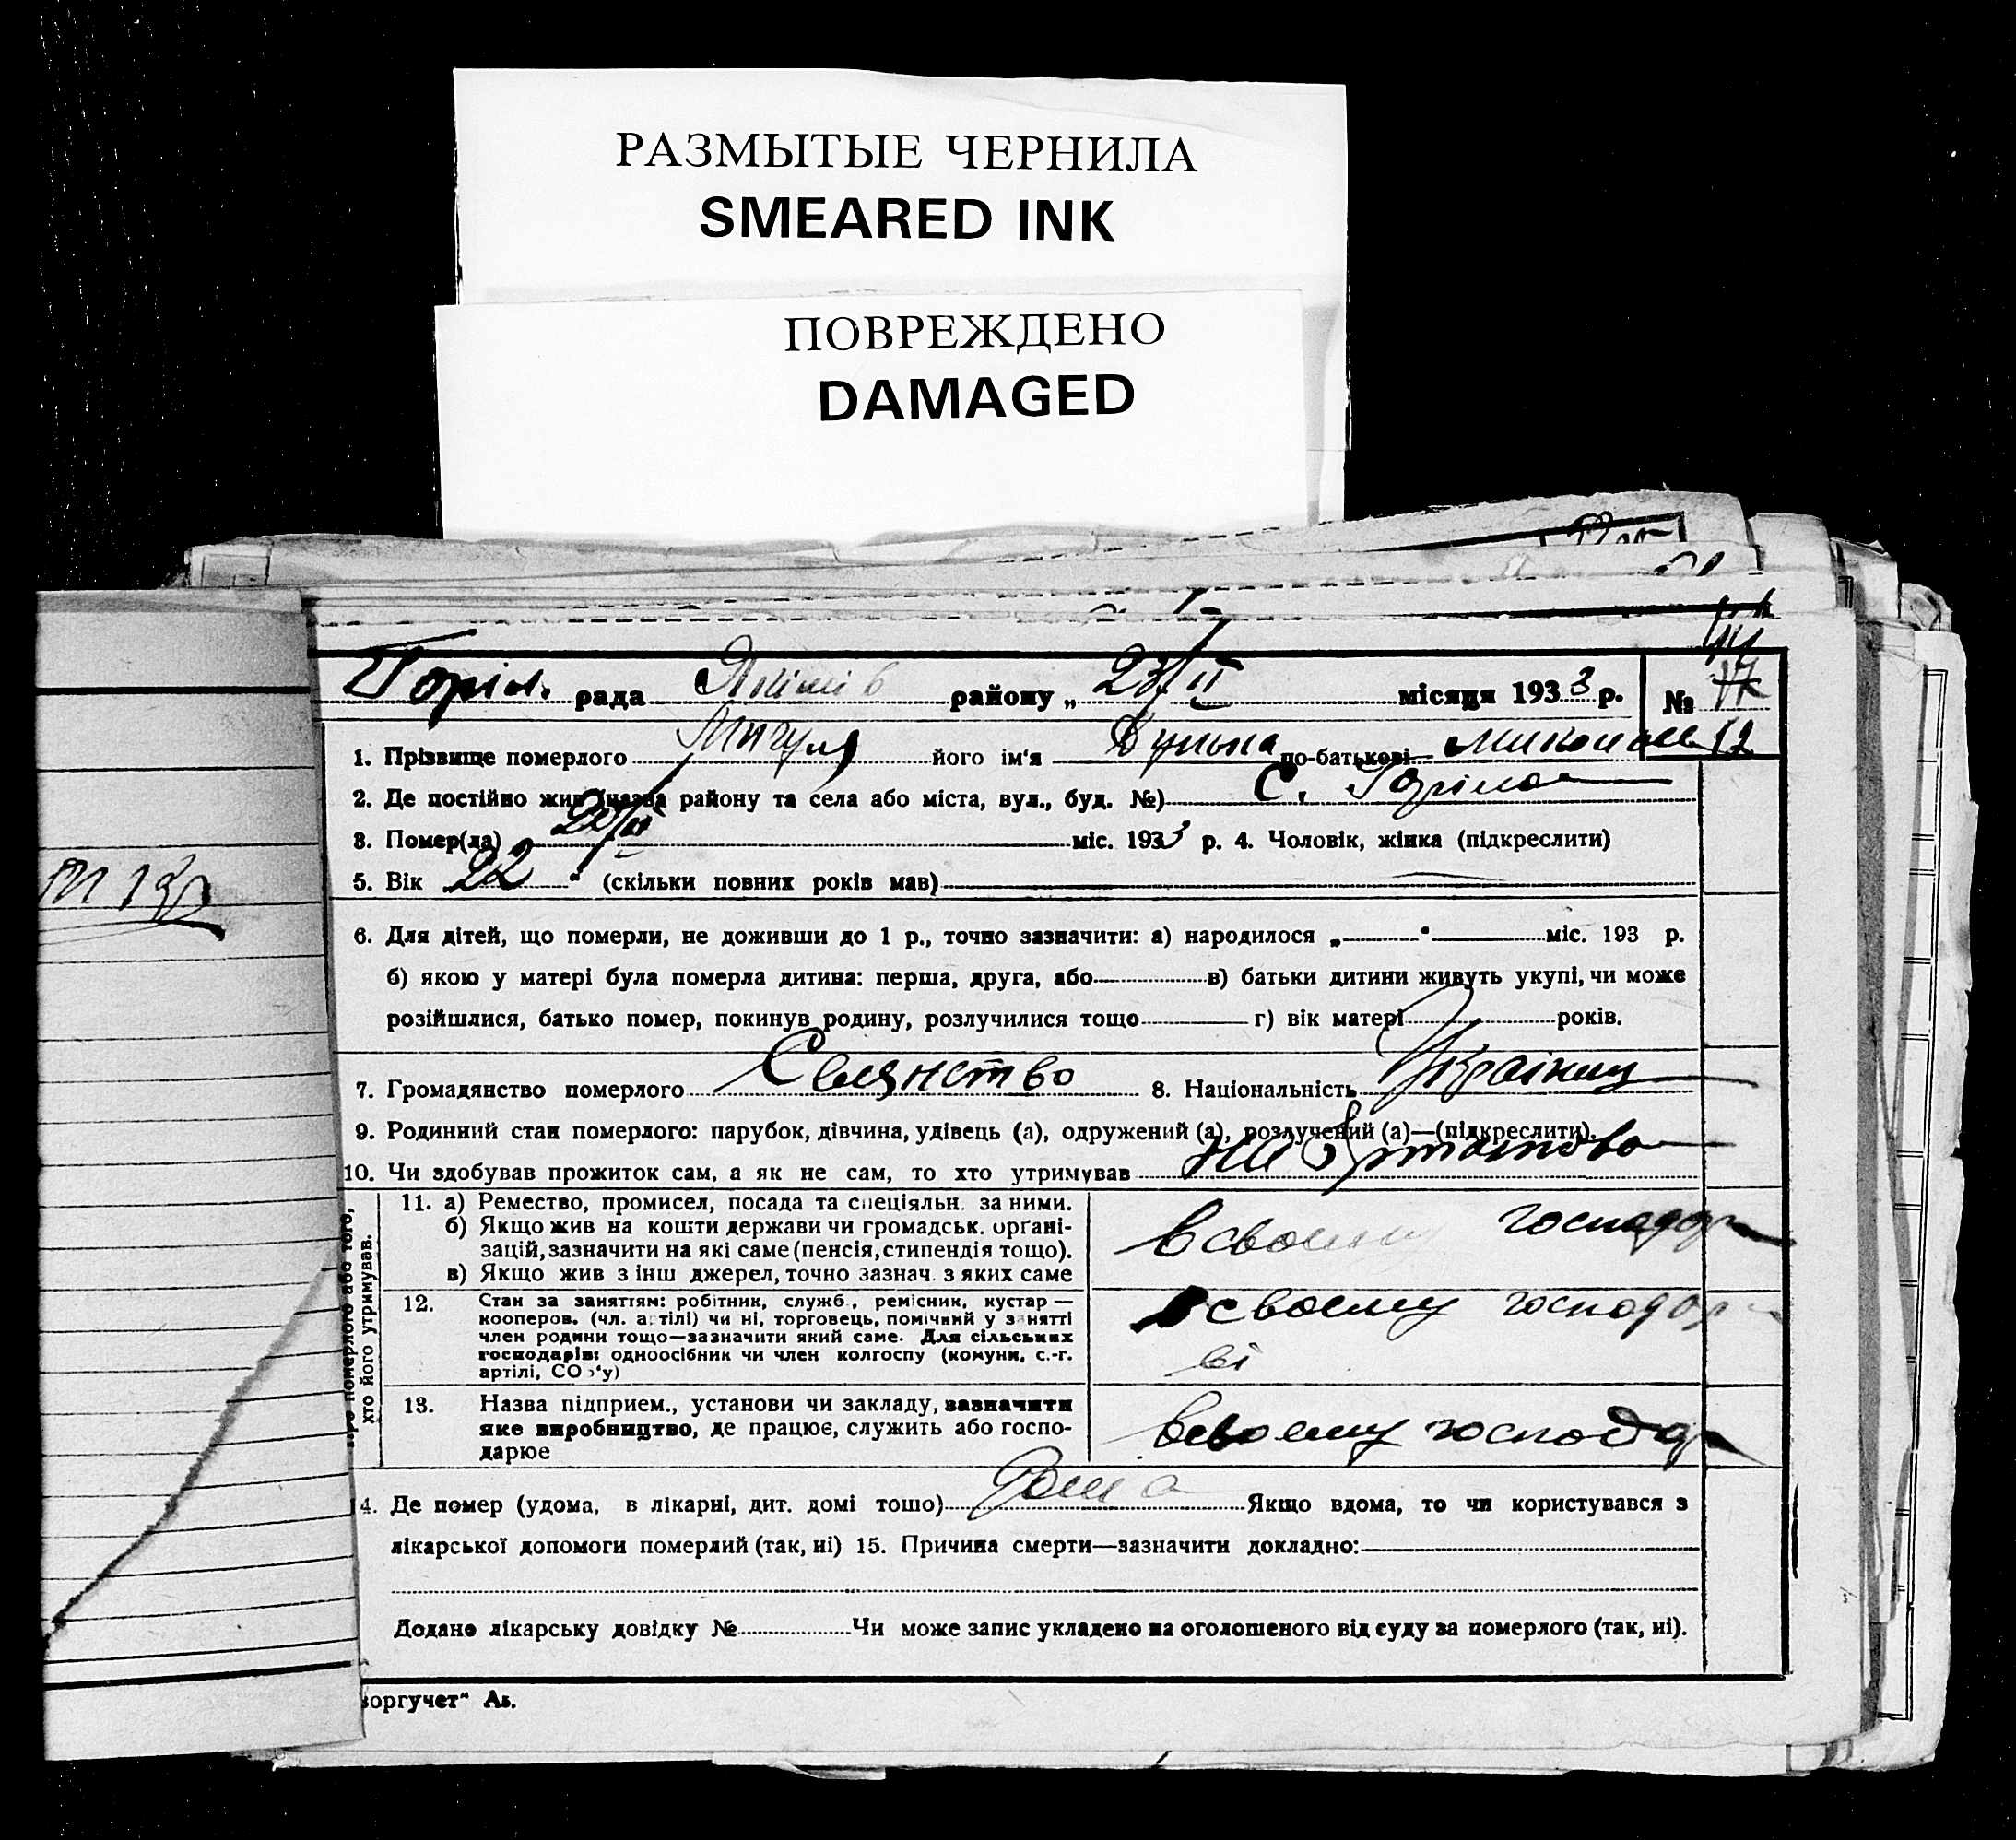 РАЗМЫТЫЕ ЧЕРНИЛА
SMEARED INK
ПОВРЕЖДЕНО
DAMAGED
Горіл. рада району „ 23/II місяця 1933 р. № 17
12
1. Прізвище померлого його ім'я по-батькові
2. Де постійно жив (назва району та села або міста, вул., буд. №) С. Горіло
3. Помер(ла) міс. 1933 р. 4. Чоловік, жінка (підкреслити)
5. Вік „22“ (скільки повних років мав)
6. Для дітей, що померли, не доживши до 1 р., точно зазначити: а) народилося „ “ міс. 193 р.
б) якою у матері була померла дитина: перша, друга, або в) батьки дитини живуть укупі, чи може
розійшлися, батько помер, покинув родину, розлучилися тощо г) вік матері років.
7. Громадянство померлого Селянство 8. Національність Українц
9. Родинний стан померлого: парубок, дівчина, удівець (а), одружений (а), розлучений (а)—(підкреслити).
10. Чи здобував прожиток сам, а як не сам, то хто утримував
про померлого або того,
хто його утримував.
11. а) Ремество, промисел, посада та спеціяльн. за ними.
б) Якщо жив на кошти держави чи громадськ. органі-
зацій, зазначити на які саме (пенсія, стипендія тощо).
в) Якщо жив з інш джерел, точно зазнач. з яких саме
в своєму господар
12. Стан за заняттям: робітник, служб., ремісник, кустар—
кооперов. (чл. артілі) чи ні, торговець, помічний у занятті
член родини тощо—зазначити який саме. Для сільських
господарів: одноосібник чи член колгоспу (комуни, с.-г.
артілі, СО у)
в своєму господар
ві
13. Назва підприєм., установи чи закладу, зазначити
яке виробництво, де працює, служить або госпо-
дарює
в своєму господар
14. Де помер (удома, в лікарні, дит. домі тощо) Дома Якщо вдома, то чи користувався з
лікарської допомоги померлий (так, ні) 15. Причина смерти—зазначити докладно:
Додано лікарську довідку № Чи може запис укладено на оголошеного від суду за померлого (так, ні).
воргучет“ Аз.